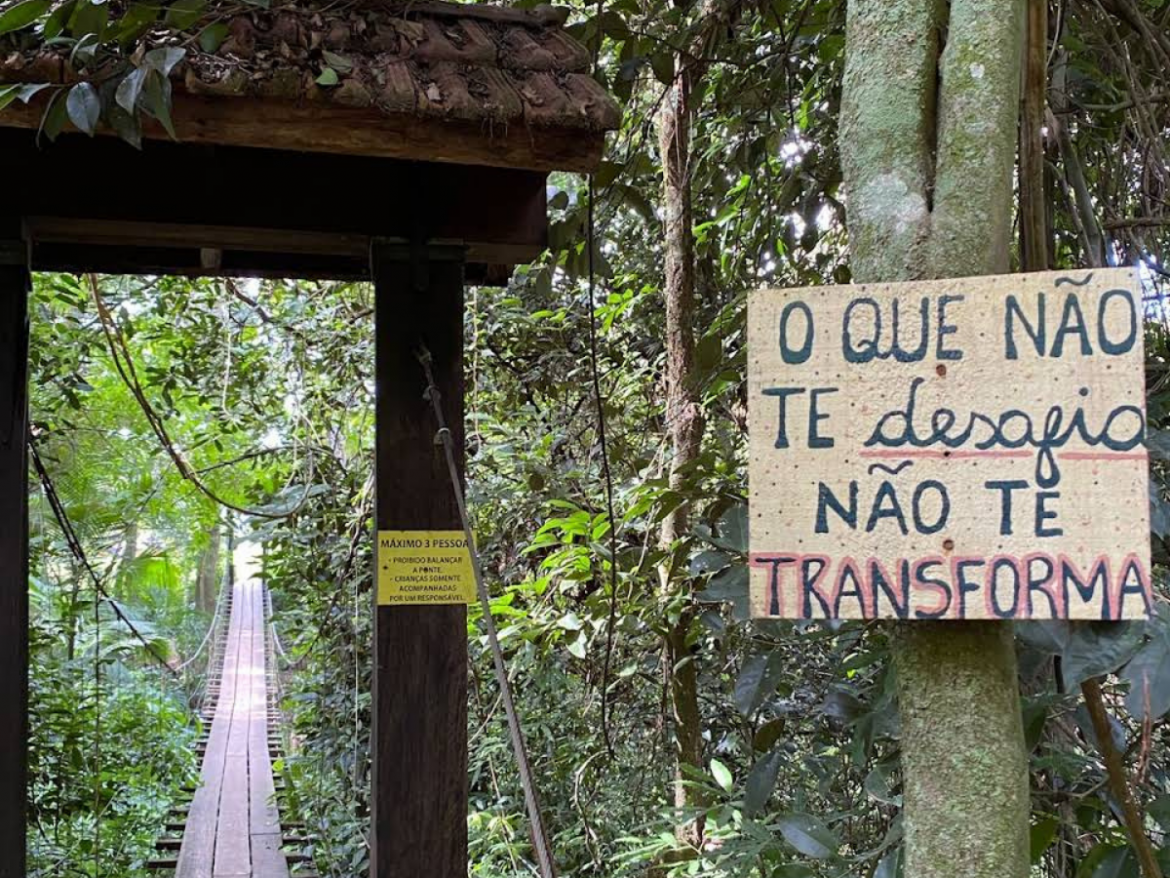 MÁXIMO 3 PESSOA
• PROIBIDO BALANÇAR
A PONTE.
• CRIANÇAS SOMENTE
ACOMPANHADAS
POR UM RESPONSÁVEL.
O QUE NÃO
TE desafia
NÃO TE
TRANSFORMA